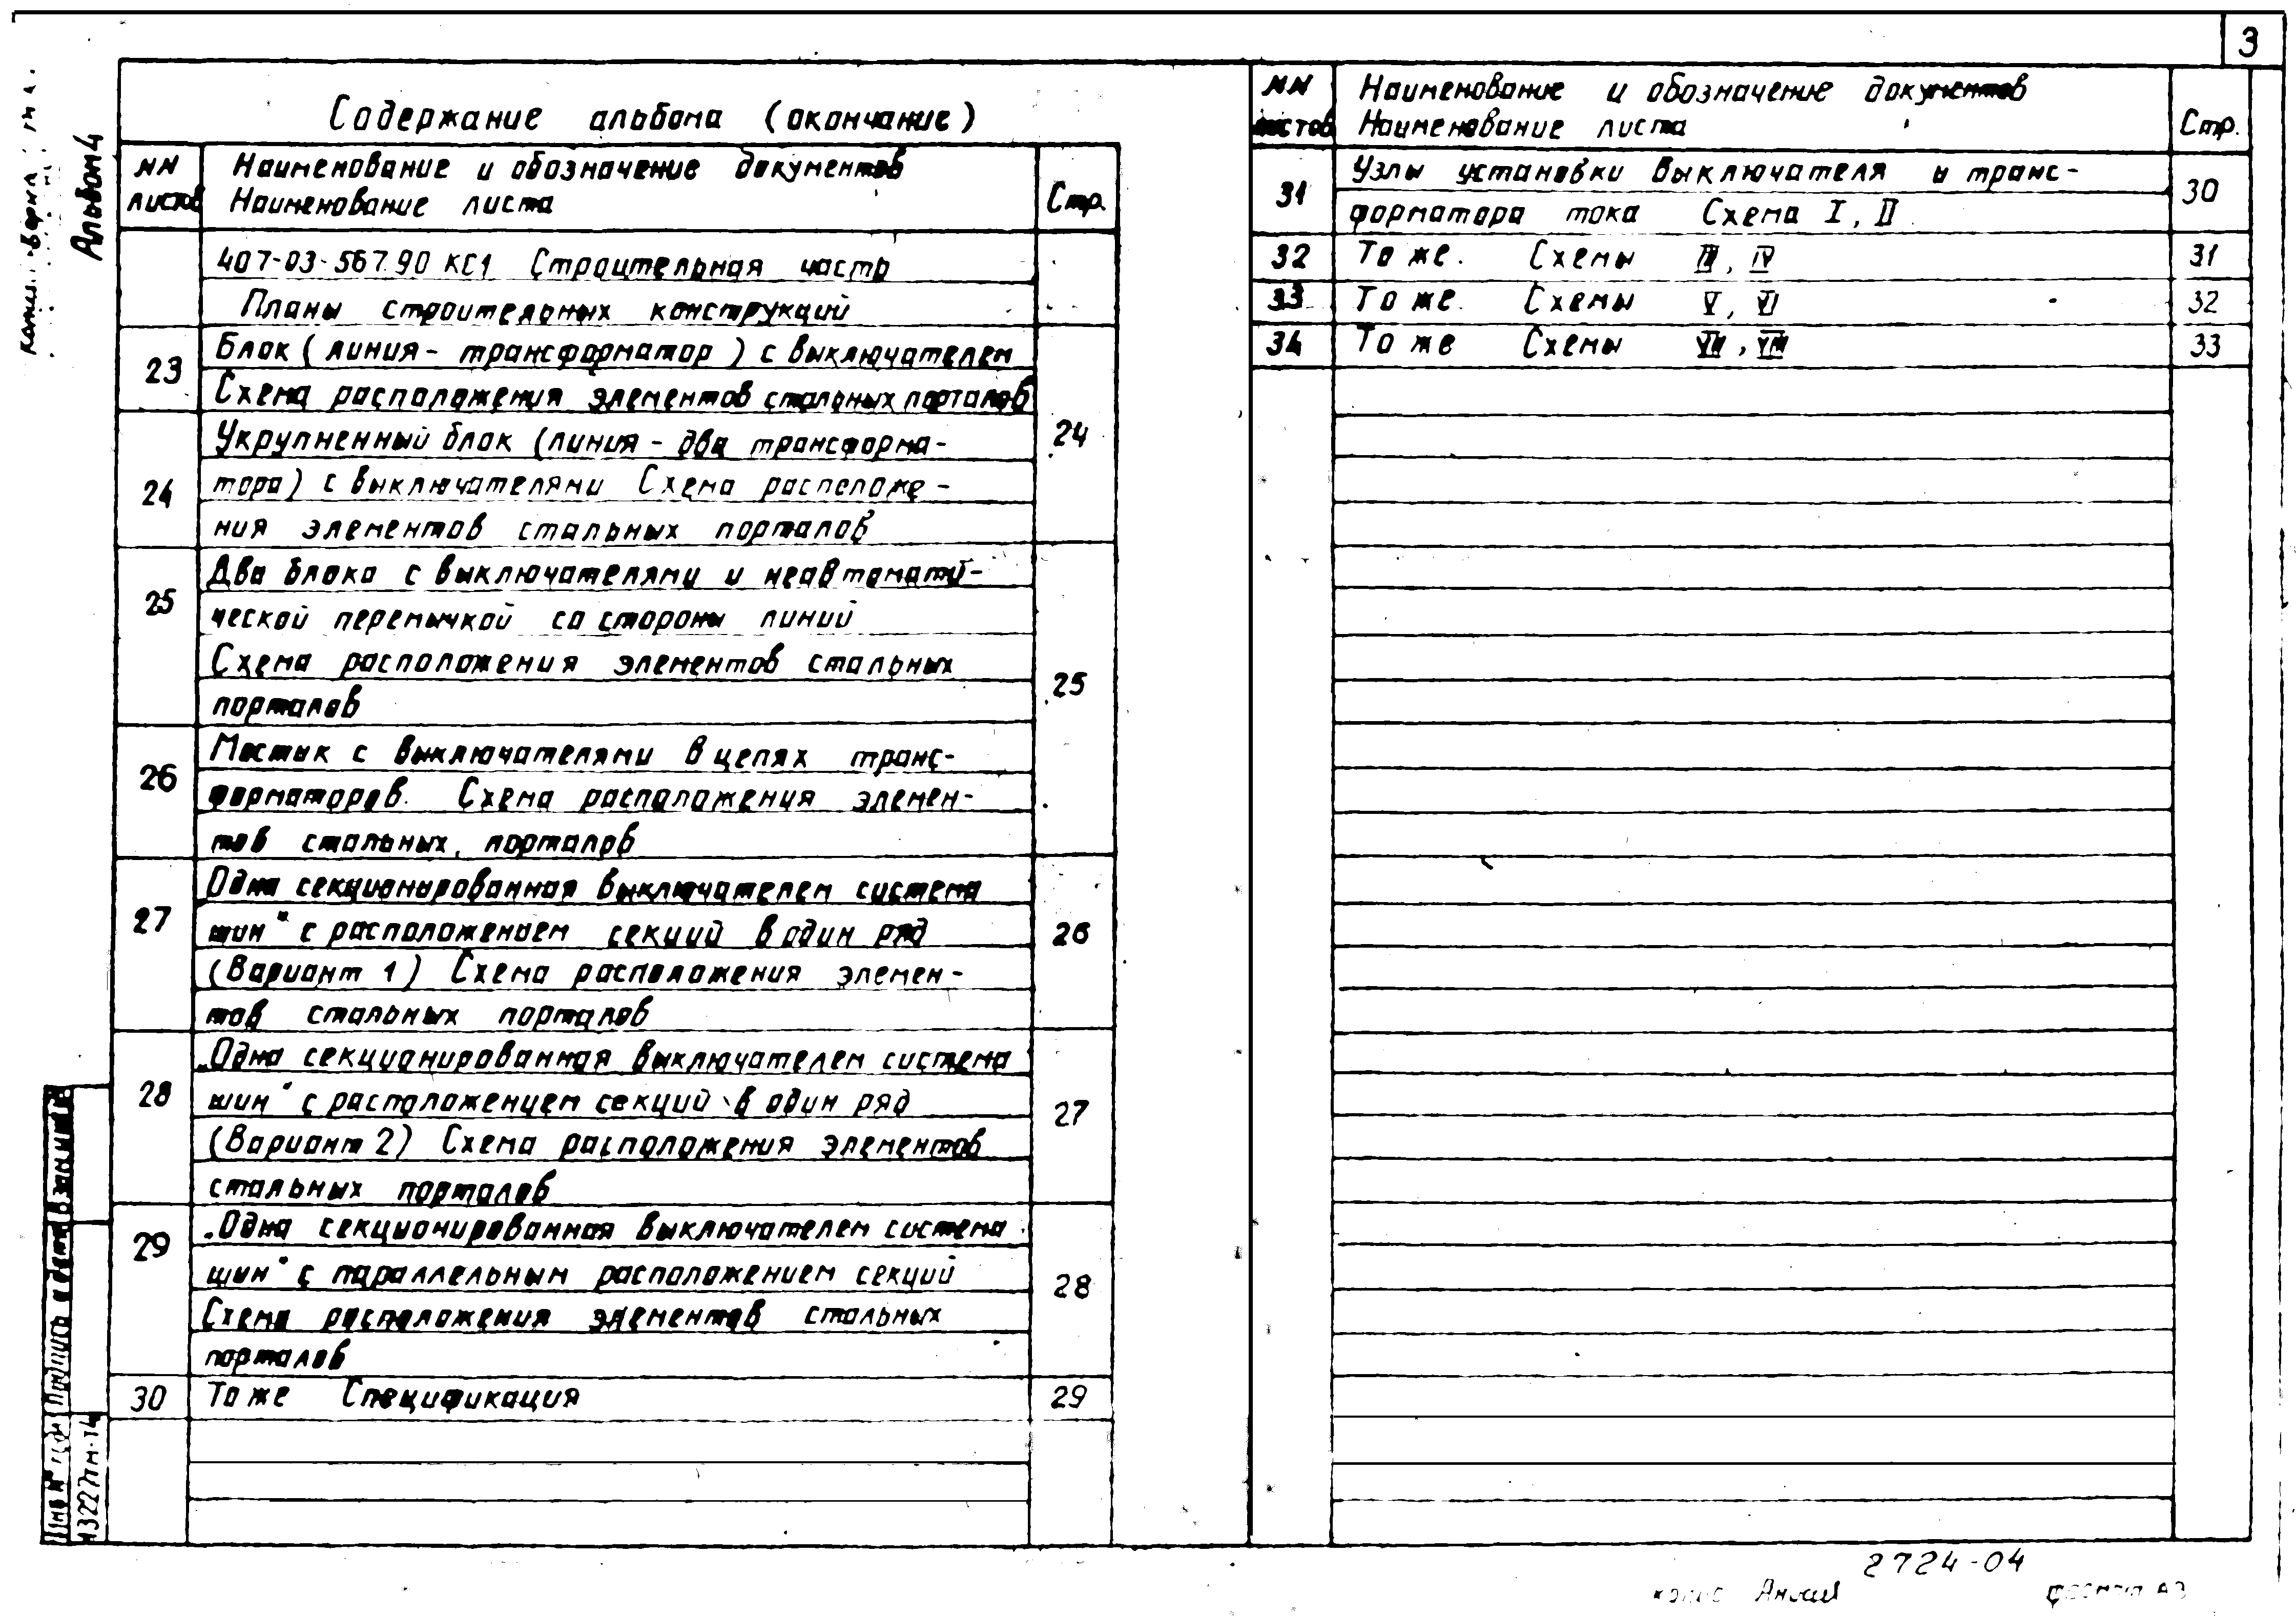 3
Альбом 4
Содержание альбома (окончание)
NN листов
Наименование и обозначение документов
Наименование листа
Стр.
407-03-567.90 КС1 Строительная часть
Планы строительных конструкций
23
Блок (линия - трансформатор) с выключателем
Схема расположения элементов стальных порталов
24
Укрупненный блок (линия - два трансформа-
24
тора) с выключателями Схема расположе-
ния элементов стальных порталов
25
Два блока с выключателями и неавтомати-
ческой перемычкой со стороны линий
Схема расположения элементов стальных
25
порталов
26
Мостик с выключателями в цепях транс-
форматоров. Схема расположения элемен-
тов стальных порталов
27
Одна секционированная выключателем система
шин" с расположением секций в один ряд
26
(Вариант 1) Схема расположения элемен-
тов стальных порталов
28
„Одна секционированная выключателем система
шин" с расположением секций в один ряд
27
(Вариант 2) Схема расположения элементов
стальных порталов
29
„Одна секционированная выключателем система
шин" с параллельным расположением секций
28
Схема расположения элементов стальных
порталов
30 То же Спецификация 29
NN листов
Наименование и обозначение документов
Наименование листа
Стр.
31
Узлы установки выключателя и транс-
форматора тока Схема I, II
30
32 То же. Схемы III, IV 31
33 То же. Схемы V, VI 32
34 То же Схемы VII, VIII 33
Подпись и дата
Взам.инв.
2724-04
формат А3